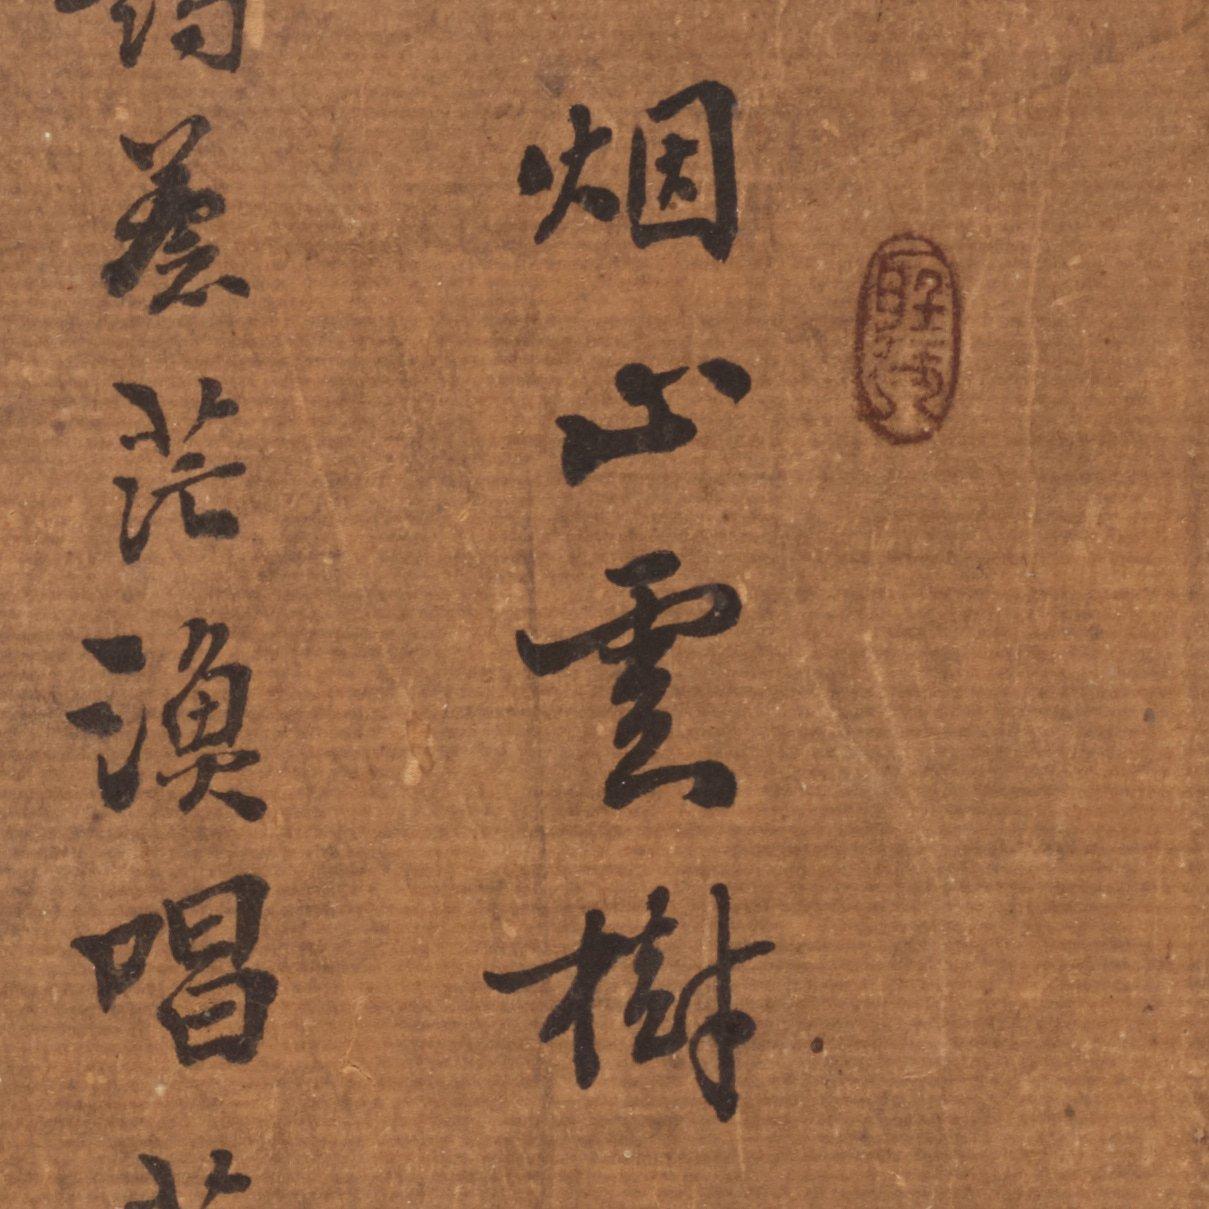 烟山雲樹
蒼茫漁唱